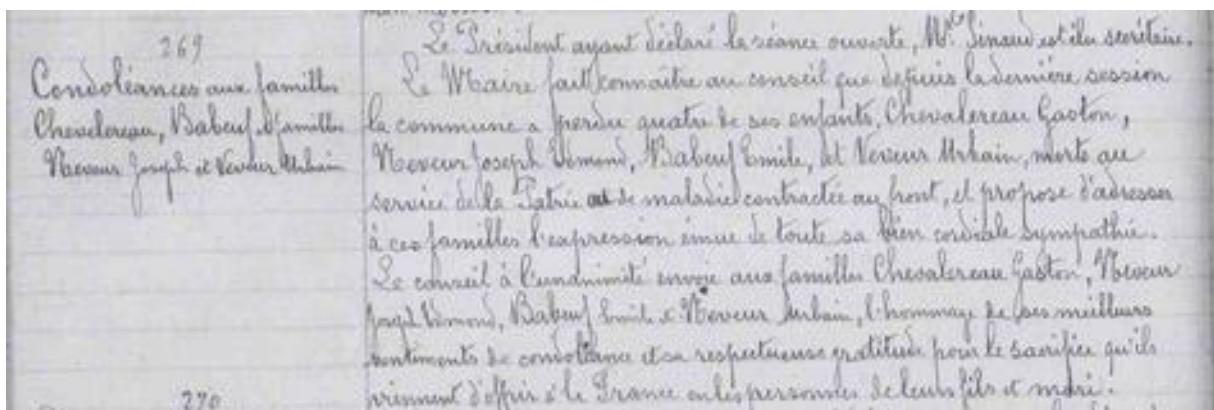 269
Condoléances aux familles
Chevalereau, Babeuf, familles
Neveur Joseph et Neveur Urbain
Le Président ayant déclaré la séance ouverte, Mr Sinaud est élu secrétaire.
Le Maire fait connaître au conseil que depuis la dernière session
la commune a perdu quatre de ses enfants, Chevalereau Gaston,
Neveur Joseph Edmond, Babeuf Emile, et Neveur Urbain, morts au
service de la Patrie de maladie contractée au front, et propose d'adresser
à ces familles l'expression émue de toute sa bien cordiale sympathie.
Le conseil à l'unanimité envoie aux familles Chevalereau Gaston, Neveur
Joseph Edmond, Babeuf Emile & Neveur Urbain, l'hommage de ses meilleurs
sentiments de condoléance et sa respectueuse gratitude pour le sacrifice qu'ils
viennent d'offrir à la France en les personnes de leurs fils et mari.
270